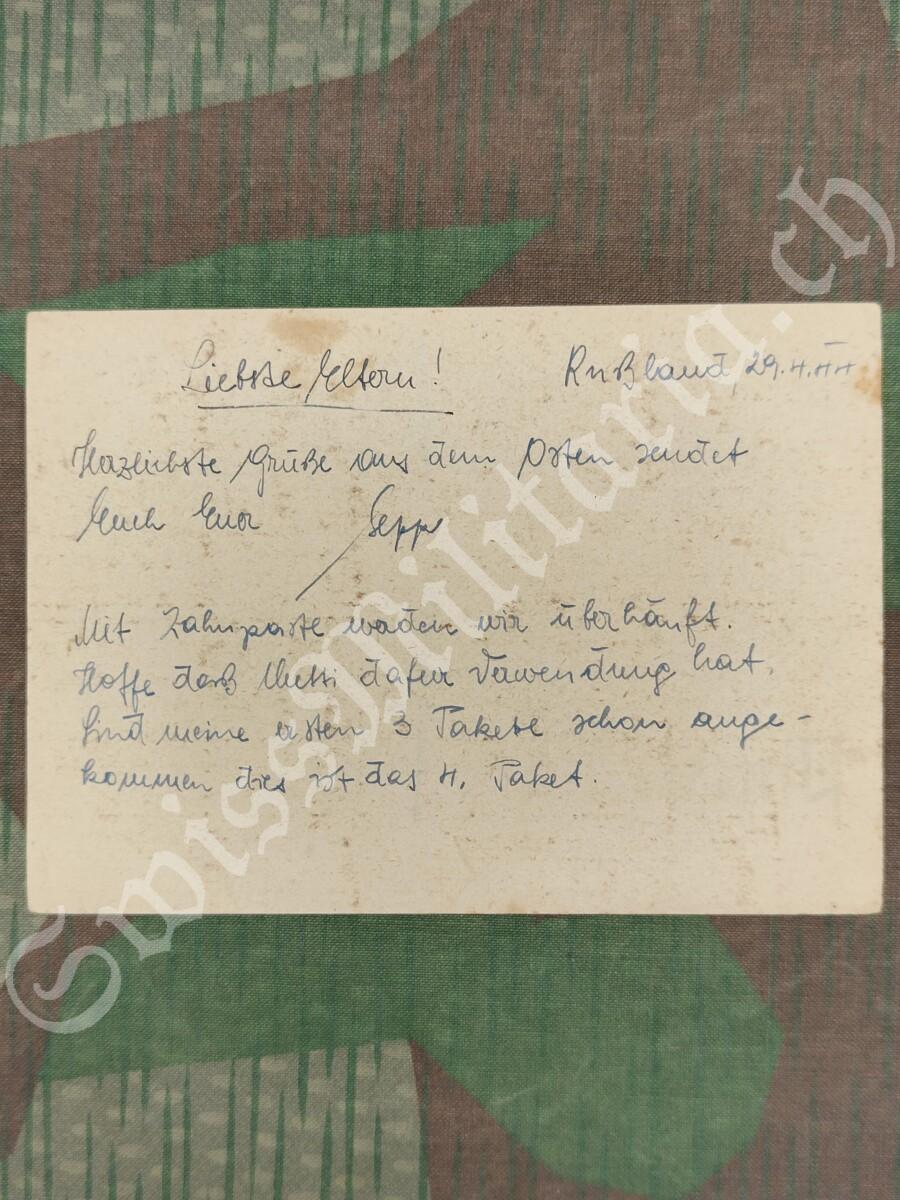 Liebste Eltern!
Rußland, 29.4.44
Herzlichste Grüße aus dem Osten sendet
Euch Euer Sepp
Mit Zahnpaste werden wir überhäuft.
Hoffe daß Mutti dafür Verwendung hat.
Sind meine ersten 3 Pakete schon ange-
kommen dies ist das 4. Paket.
SwissMilitaria.ch